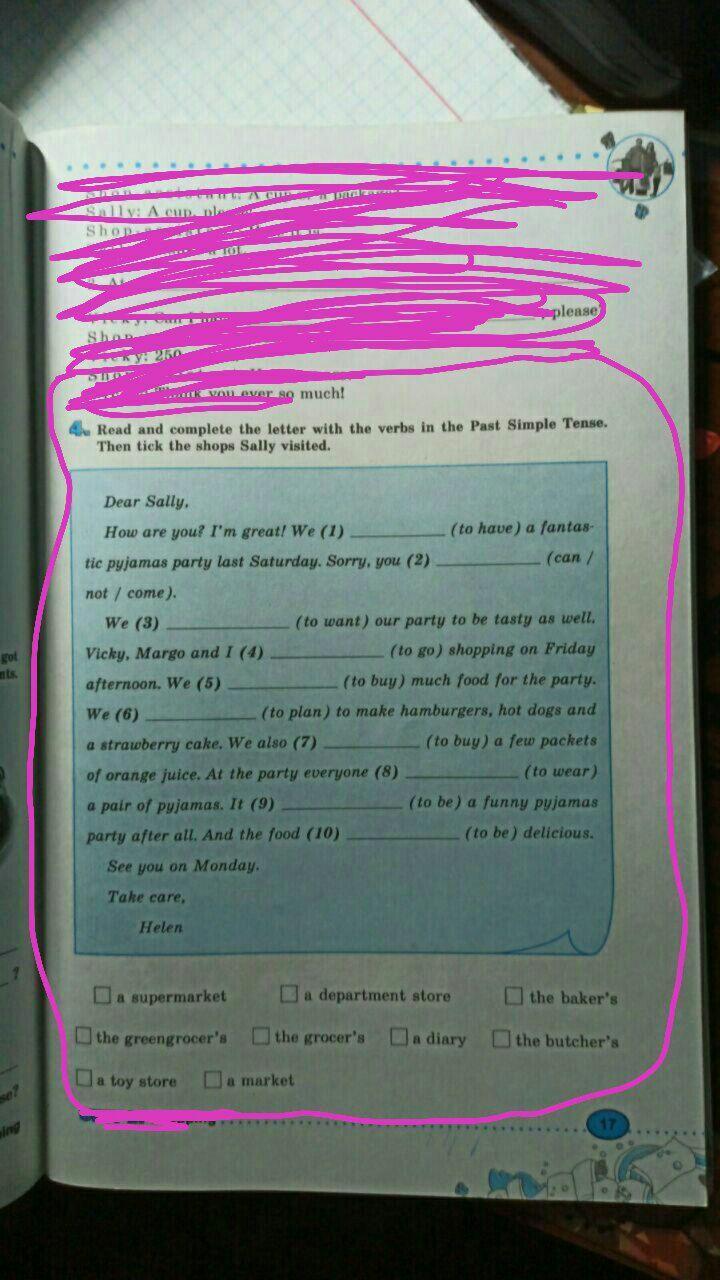 Shop-assistant: A cup or a package
Sally: A cup, please
Shop-
a lot.
2. At
Vicky: Can I have , please
Shop
Vicky: 250
Shop
Thank you ever so much!
4. Read and complete the letter with the verbs in the Past Simple Tense.
Then tick the shops Sally visited.
Dear Sally,
How are you? I'm great! We (1) __________ (to have) a fantas-
tic pyjamas party last Saturday. Sorry, you (2) __________ (can /
not / come).
We (3) __________ (to want) our party to be tasty as well.
Vicky, Margo and I (4) __________ (to go) shopping on Friday
afternoon. We (5) __________ (to buy) much food for the party.
We (6) __________ (to plan) to make hamburgers, hot dogs and
a strawberry cake. We also (7) __________ (to buy) a few packets
of orange juice. At the party everyone (8) __________ (to wear)
a pair of pyjamas. It (9) __________ (to be) a funny pyjamas
party after all. And the food (10) __________ (to be) delicious.
See you on Monday.
Take care,
Helen
a supermarket a department store the baker's
the greengrocer's the grocer's a diary the butcher's
a toy store a market
17
got
nts.
?
se?
ing